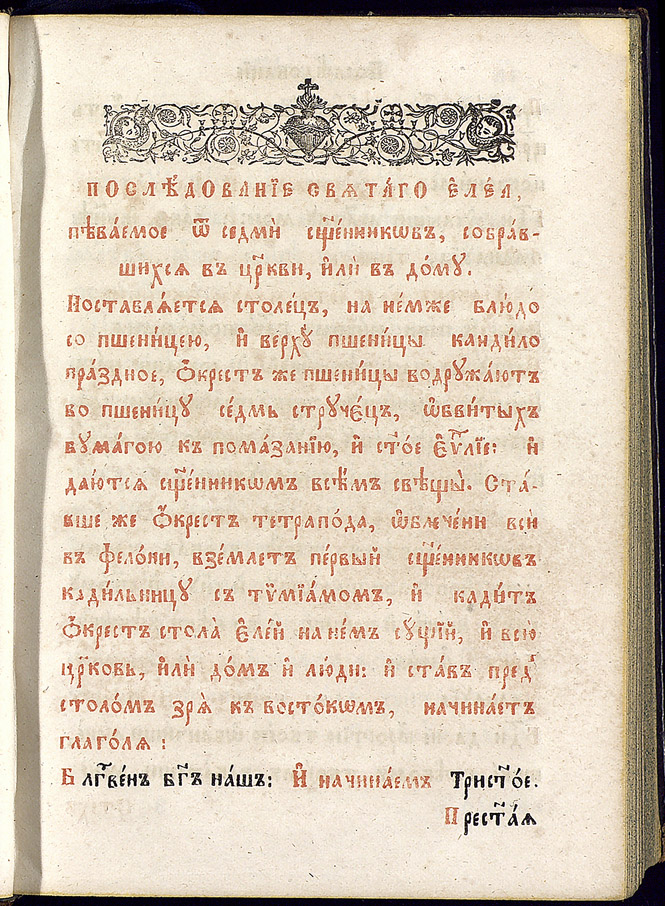 ПОСЛѢ́ДОВАНЇЕ СВѦТА́ГѠ Є҆ЛЕ́А,
пѣва́емое ѿ седмѝ сщ҃е́нникѡвъ, собра́в-
шихсѧ въ цр҃кви, и҆лѝ въ до́мꙋ.
Поставлѧ́етсѧ столе́цъ, на не́мже блю́до
со пшени́цею, и҆ верхꙋ̀ пшени́цы канди́ло
пра́здное, Ѻ҆́крестъ же пшени́цы водрꙋжа́ютъ
во пшени́цꙋ се́дмь стрꙋ́чецъ, ѡ҆бви́тыхъ
бꙋма́гою къ пома́занїю, и҆ ст҃о́е є҆ѵⷢ҇лїе: и҆
даю́тсѧ сщ҃е́нникѡмъ всѣ̑мъ свѣщы̀. Ста́-
вше же Ѻ҆́крестъ тетрапо́да, ѡ҆блече́ни всѝ
въ фело́ни, взе́млетъ пе́рвый сщ҃е́нникѡвъ
кади́льницꙋ съ тѷмїа́момъ, и҆ кади́тъ
Ѻ҆́крестъ стола̀ є҆ле́й на не́мъ сꙋ́щїй, и҆ всю̀
цр҃ковь, и҆лѝ до́мъ и҆ лю́ди: и҆ ста́въ пред̾
столо́мъ зрѧ̀ къ восто́кѡмъ, начина́етъ
глаго́лѧ:
Блгⷭ҇ве́нъ бг҃ъ на́шъ: И҆ начина́емъ Трист҃о́е.
Прест҃а́ѧ